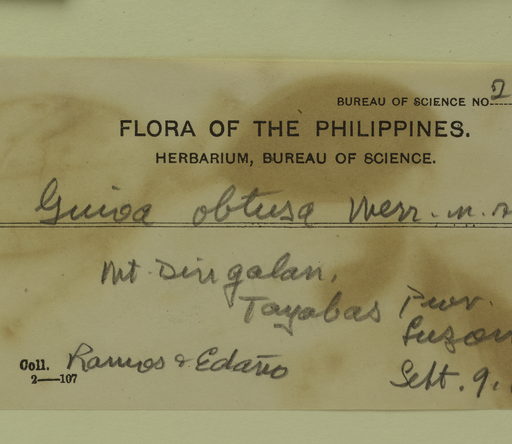 BUREAU OF SCIENCE NO. 2
FLORA OF THE PHILIPPINES.
HERBARIUM, BUREAU OF SCIENCE.
Guioa obtusa Merr. n.
Mt. Dingalan,
Tayabas Prov.
Luzon
Coll. Ramos & Edaño
Sept. 9,
2—107